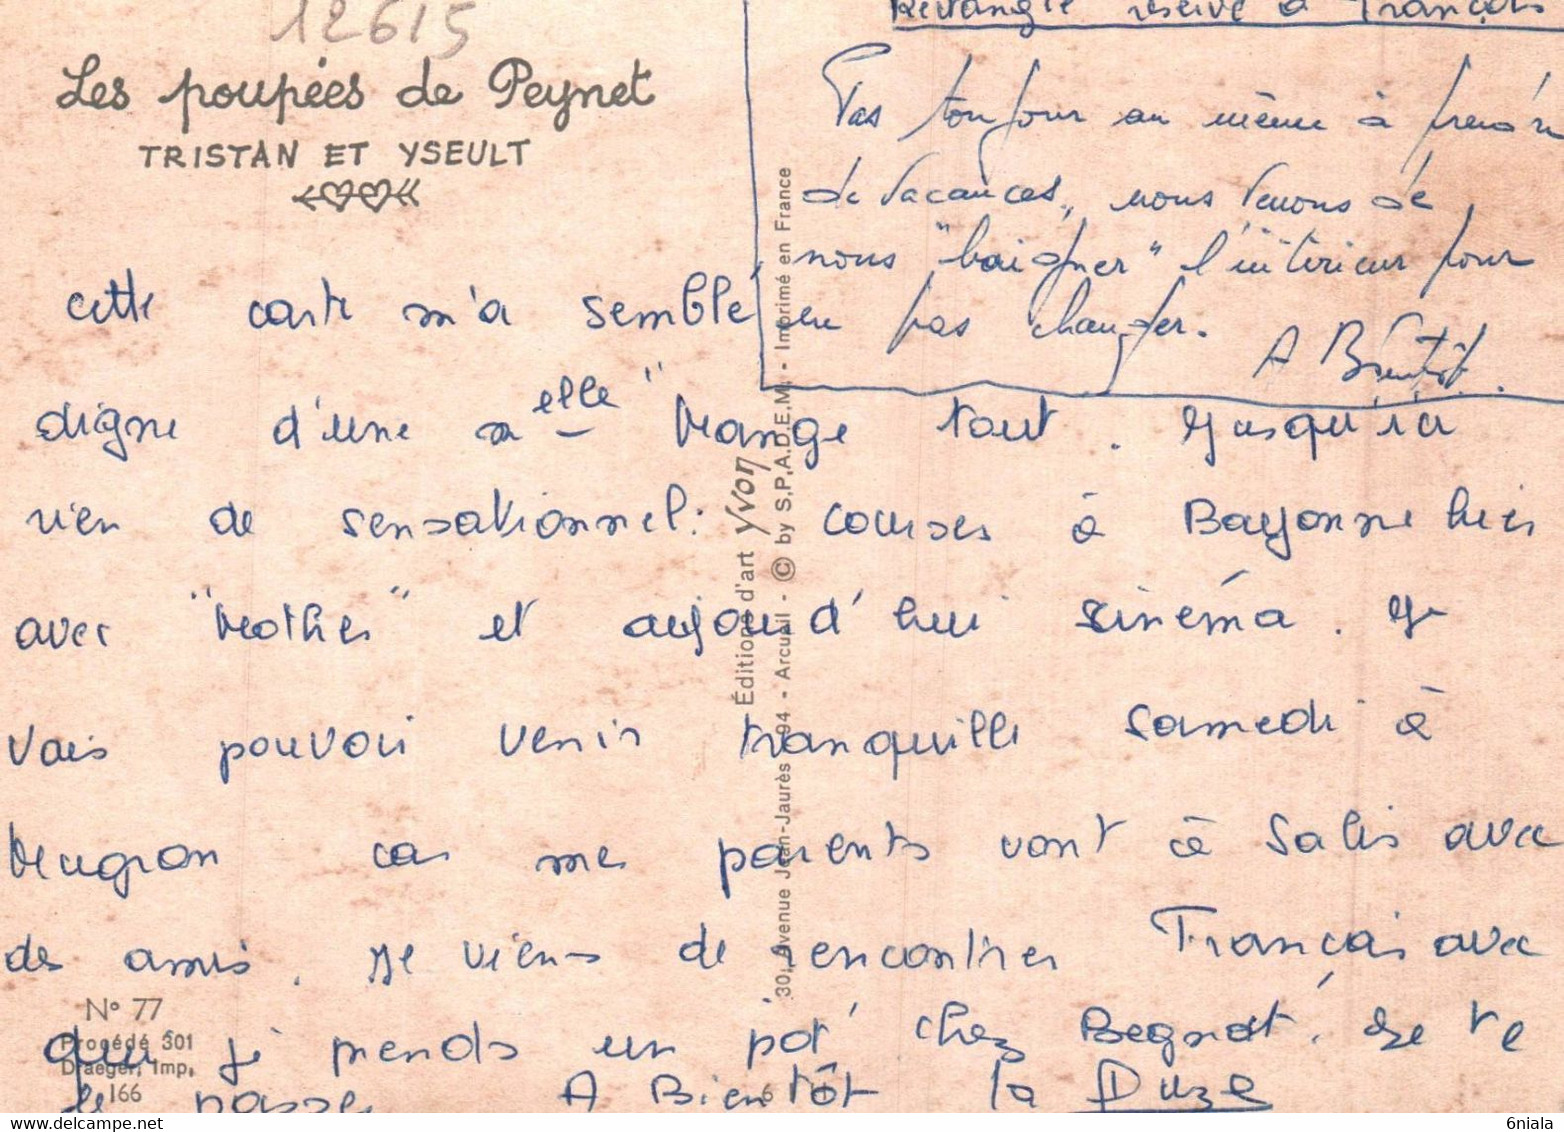 12615
Les poupées de Peynet
TRISTAN ET YSEULT
Rectangle réservé à François
Pas toujour au même à prendre
de vacances, nous venons de
nous "baigner" l'intérieur pour
en pas changer.
A Bientôt.
cette carte m'a semblé
digne d'une melle "Mange tout. Jusqu'ici
rien de sensationnel: courses à Bayonne hier
avec "Mother" et aujourd'hui cinéma. Je
vais pouvoir venir tranquille samedi à
Mugron car mes parents vont à Salis avec
des amis. Je viens de rencontrer François avec
qui je prends un pot chez Begnat. Je te
le passe A Bientôt la Duze
Éditions d'art yvon
30, Avenue Jean-Jaurès 94 - Arcueil - © by S.P.A.D.E.M. - Imprimé en France
N° 77
Procédé 301
Draeger, Imp.
166
6
www.delcampe.net
6niala